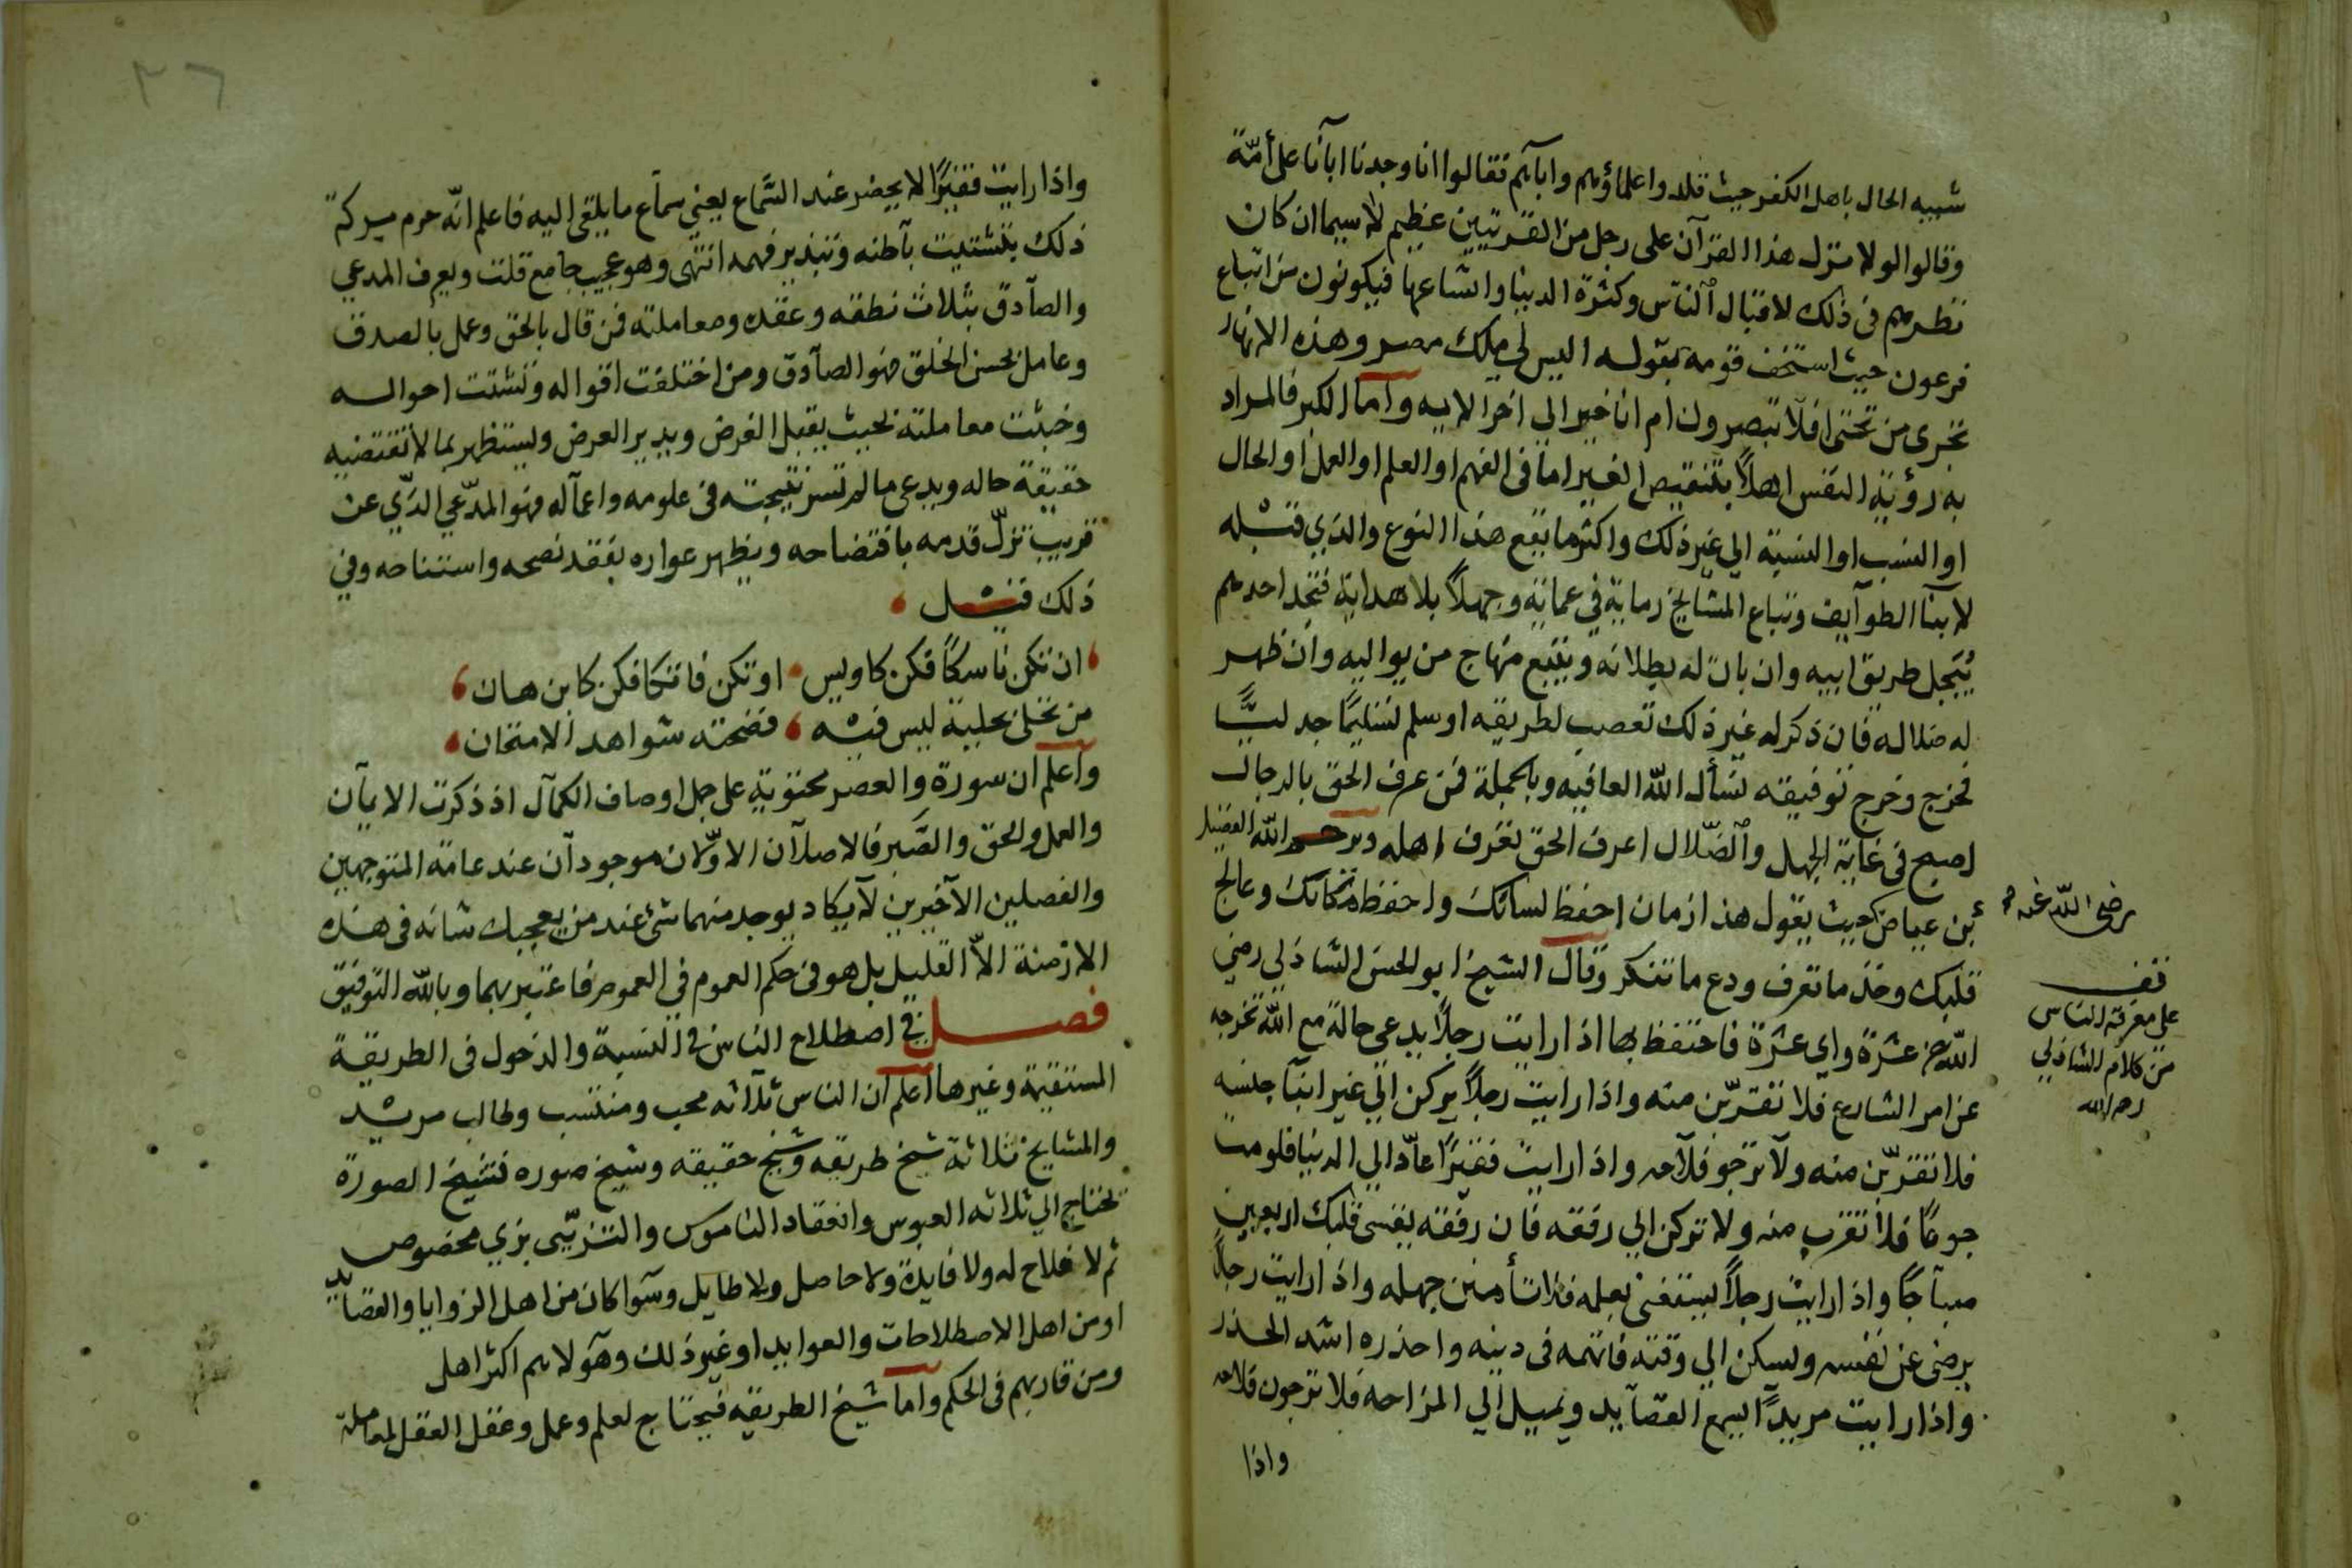 شبيه الحال باهل الكفر حيث قلدوا علماؤهم وابآئهم فقالوا انا وجدنا ابآنا على أمّة
وقالوا لولا نزل هذا القرآن على رجل من القريتين عظيم لا سيما ان كان
نظرهم في ذلك لاقبال الناس وكثرة الدنيا واتساعها فيكونون من اتباع
فرعون حيث استخف قومه بقوله اليس لي ملك مصر وهذه الانهار
تجري من تحتي افلا تبصرون ام انا خير الى اخر الايه وأما الكبر فالمراد
به رؤية النفس اهلاً بتنقيص الغير اما في الفهم او العلم او العمل او الحال
او النسب او النسبة الي غير ذلك واكثر ما يقع هذا النوع والذي قبله
لابنآ الطوآيف وتباع المشايخ رماية في عماية وجهلاً بلا هداية فتجد احدهم
يُبَجل طريق ابيه وان بان له بطلانه ويتبع منهاج من يواليه وان ظهر
له ضلاله فان ذكر له غير ذلك تعصب لطريقه او سلم تسليمًا جدليًّا
فخرج وخرج توفيقه نسأل الله العافيه وبالجملة فمن عرف الحق بالرجال
اصبح في غاية الجهل والضّلال اعرف الحق تعرف اهله ورحم الله الفضيل
بن عياض حيث يقول هذا زمان احفظ لسانك واحفظ مكانك وعالج
قلبك وخذ ما تعرف ودع ما تنكر وقال الشيخ ابو الحسن الشاذلي رضي
الله عشرة واي عشرة فاحتفظ بها اذا رايت رجلاً يدعي حالة مع الله تخرجه
عن امر الشارع فلا تقتربّن منه واذا رايت رجلاً يركن الي غير ابنآ جنسه
فلا تقتربّن منه ولا ترجو فلآحه واذا رايت فقيرًا عآد الي الدنيا فلو مت
جوعًا فلا تقرب منه ولا تركن الي رفقه فان رفقه يقسي قلبك اربعين
صبآحًا واذا رايت رجلاً يستغني بعلمه فلا تأمنن جهله واذا رايت رجلاً
يرضي عن نفسه ويسكن الي وقته فاتهمه في دينه واحذره اشد الحذر
واذا رايت مريداً يسمع القصآيد ويميل الي الراحه فلا ترجون فلاحه
واذا
رضي الله عنه
قف
على معرفة الناس
من كلام الشاذلي
رحمه الله
٣٦
واذا رايت فقيرًا لا يحضر عند السَّماع يعني سماع ما يلقى اليه فاعلم انّه حرم بركة
ذلك بتشتيت بآطنه وتبذير فهمه انتهى وهو عجيب جامع قلت ويعرف المدعي
والصآدق بثلاث نطقه وعقده ومعاملته فمن قال بالحق وعمل بالصدق
وعامل بحسن الخلق فهو الصآدق ومن اختلفت اقواله وتشتت احواله
وخبثت معاملته بحيث يقبل الغرض ويدير العرض ويستظهر بما لا تقتضيه
حقيقة حاله ويدعي ما لم تسر نتيجته في علومه واعمآله فهو المدّعي الذي عن
قريب تزلّ قدمه بافتضاحه ويظهر عواره بفقد نصحه واستناحه وفي
ذلك قيل
ان تكن ناسكًا فكن كاويس او تكن فاتكا فكن كابن هان
من تحلى بحلية ليس فيه فضحته شواهد الامتحان
وآعلم ان سورة والعصر محتوية على جمل اوصاف الكمآل اذ ذكرت الايمآن
والعمل والحق والصَّبر فالاصلآن الاوّلان موجودآن عند عامة المتوجهين
والفصلين الآخيرين لآ يكاد يوجد منهما شئ عند من يعجبك شانه في هذه
الازمنة الاّ القليل بل هو في حكم العموم في العموم فاعتبر بهما وبالله التوفيق
فصل في اصطلاح الناس في النسبة والدخول في الطريقة
المستقيمة وغيرها آعلم ان الناس ثلآثه محب ومنتسب وطالب مرشد
والمشايخ ثلاثة شيخ طريقه وشيخ حقيقه وشيخ صوره فشيخ الصورة
يحتاج الي ثلاثه العبوس وانعقاد الناموس والتزيّي بزي مخصوص
ثم لا فلاح له ولا فايدة ولا حاصل ولا طايل وسَوا كان من اهل الزوايا والقصايد
او من اهل الاصطلاحات والعوايد او غير ذلك وهَولا هم اكثر اهل
ومن قاربهم في الحكم واما شيخ الطريقه فيحتاج لعلم وعمل وعقل العقل لمعاملة